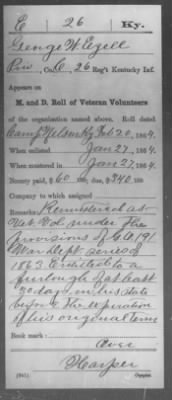 E 26 Ky.
George W. Ezell
Priv, Co. C, 26 Reg't Kentucky Inf.
Appears on
M. and D. Roll of Veteran Volunteers
of the organization named above. Roll dated
Camp Nelson Ky Feb 20, 1864.
When enlisted Jan 27, 1864.
When mustered in Jan 27, 1864.
Bounty paid, $60; due, $340
Company to which assigned
Remarks: Remustered as
Vet Vol. under the
provisions of G.O. 191
War Dept. series of
1863. Entitled to a
furlough of at least
30 days in his state
before the expiration
of his original term
Book mark:
Over
Harper
(341) Copyist.